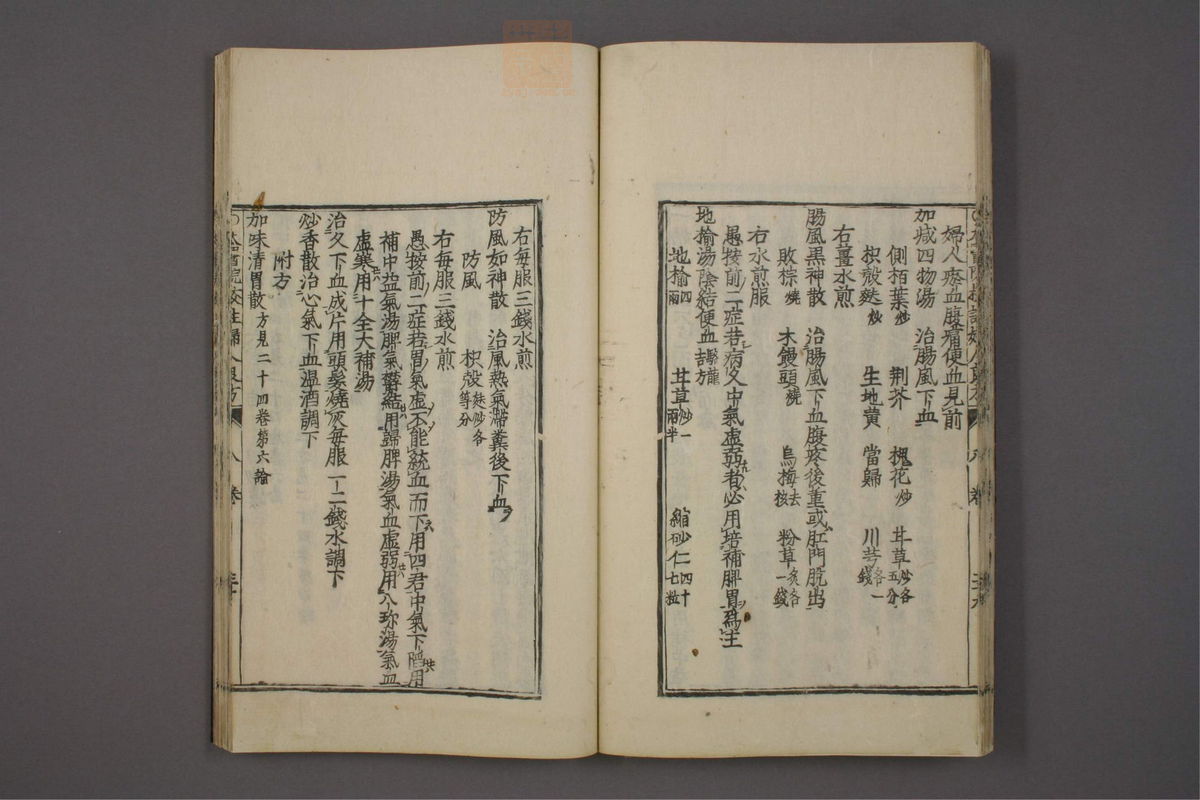 婦人瘀血腹痛便血見前
加減四物湯 治腸風下血
側栢葉炒 荆芥 槐花炒 甘草炒各五分
枳殼麩炒 生地黄 當歸 川芎各一錢
右薑水煎
腸風黒神散 治腸風下血腹疼後重或肛門脱出
敗棕燒 木饅頭燒 烏梅去核 粉草炙各一錢
右水煎服
愚按前二症若病久中氣虛弱者必用培補脾胃爲主
地揄湯陰結便血 方
地揄四兩 甘草炒一兩半 縮砂仁四十七粒
右每服三錢水煎
防風如神散 治風熱氣滯糞後下血
防風 枳殼麸炒各等分
右每服三錢水煎
愚按前二症若胃氣虛不能統血而下用四君中氣下陷用
補中益氣湯脾氣欝結用歸脾湯氣血虛弱用八珎湯氣血
虛寒用十全大補湯
治久下血成片用頭髮燒灰每服一二錢水調下
炒香散治心氣下血温酒調下
附方
加味清胃散方見二十四卷第六論